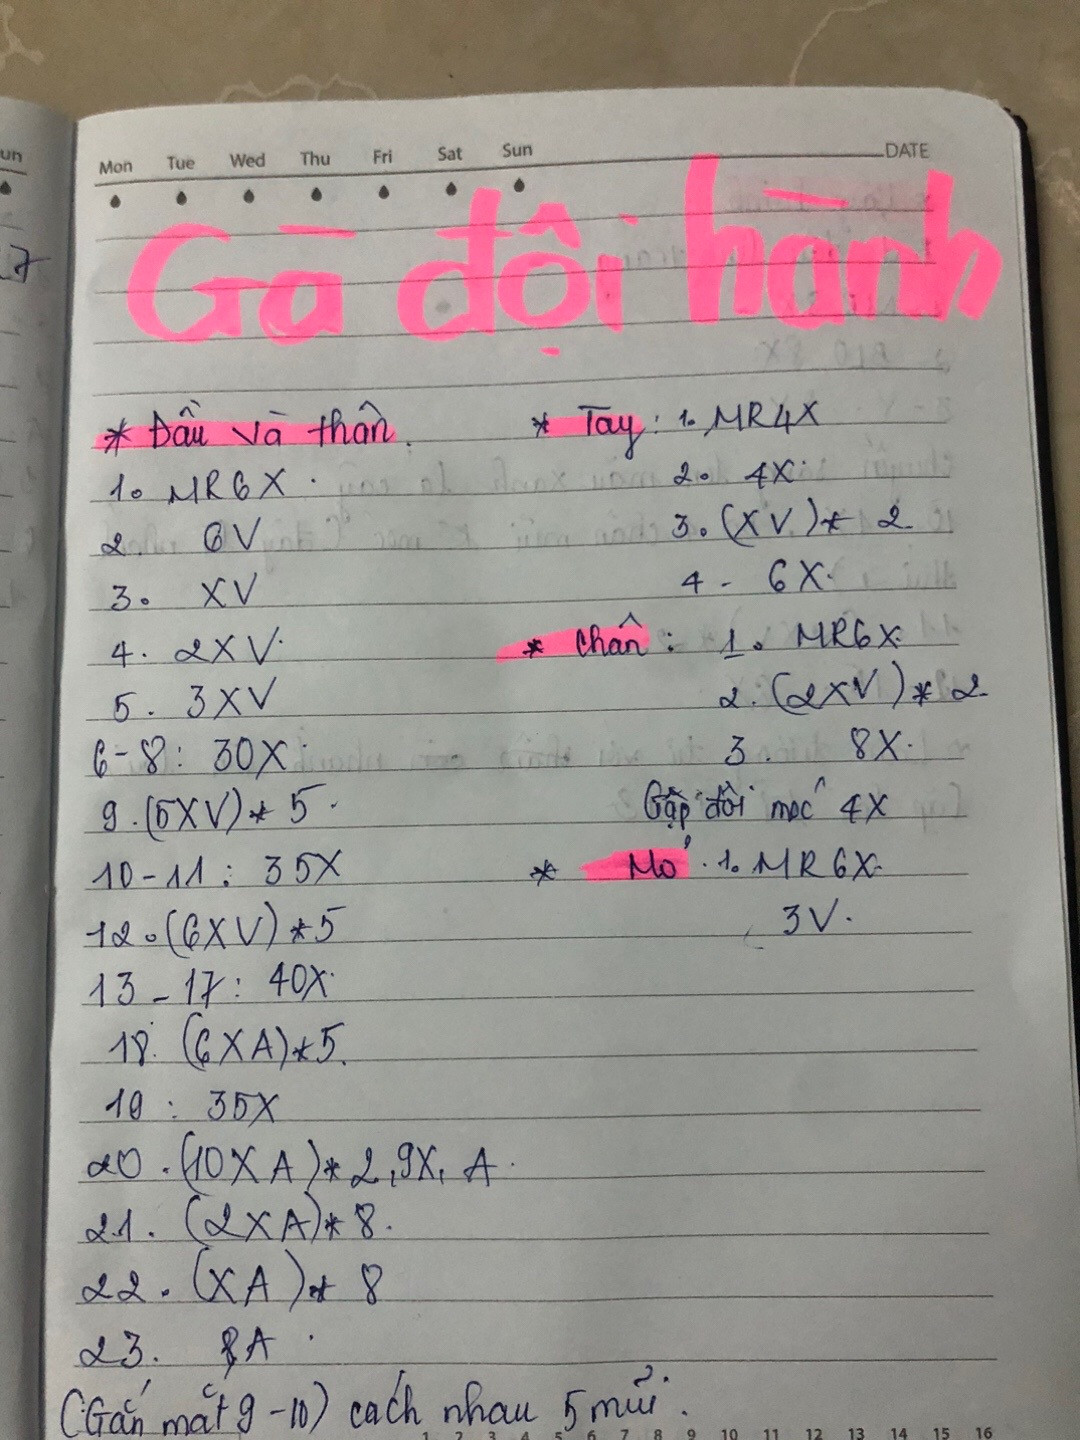 un
Mon Tue Wed Thu Fri Sat Sun
DATE
7
Gà đội hành
* Đầu và thân.
1. MR6X.
2. 6V
3. XV
4. 2XV.
5. 3XV
6-8: 30X.
9. (5XV)* 5.
10-11: 35X
12. (6XV)*5
13-17: 40X.
18. (6XA)*5.
19: 35X
20. (10XA)*2, 9X, A.
21. (2XA)* 8.
22. (XA)* 8
23. 8A.
(Gắn mắt 9-10) cách nhau 5 mũi.
* Tay: 1. MR4X
2. 4X.
3. (XV)* 2
4- 6X.
* Chân: 1. MR6X.
2. (2XV)* 2
3. 8X.
Gập đôi móc 4X
* Mỏ. 1. MR6X.
3V.
1 2 3 4 5 6 7 8 9 10 11 12 13 14 15 16